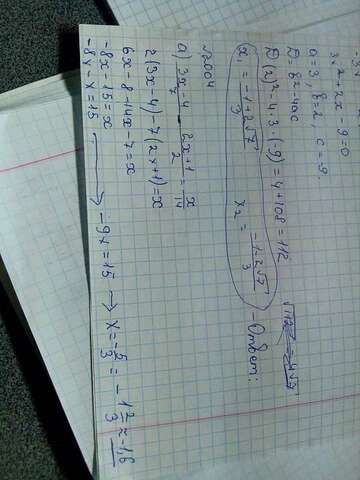 3x² - 2x - 9 = 0
a = 3, b = 2, c = -9.
D = b² - 4ac
D (2)² - 4·3·(-9) = 4 + 108 = 112
√112 = 4√7
x₁ = (-1 + 2√7)/3 x₂ = (-1 - 2√7)/3 - Ответ:
№2004
а) (3x - 4)/7 - (2x + 1)/2 = x/14
2(3x - 4) - 7(2x + 1) = x
6x - 8 - 14x - 7 = x
-8x - 15 = x
-8x - x = 15 → -9x = 15 → x = -5/3 = -1 2/3 ≈ -1,6